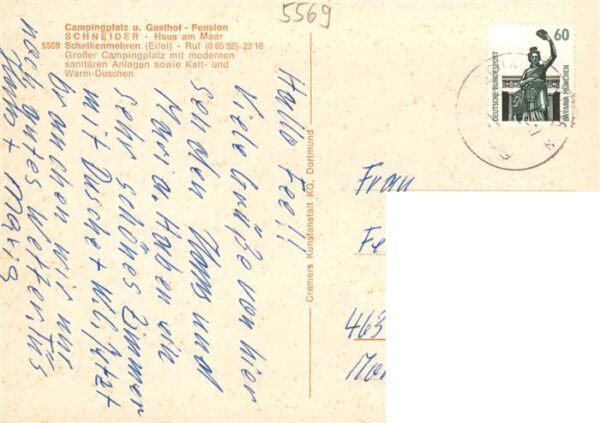 5569
Campingplatz u. Gasthof - Pension
SCHNEIDER - Haus am Maar
5569 Schalkenmehren (Eifel) - Ruf (0 65 92) - 23 16
Großer Campingplatz mit modernen
sanitären Anlagen sowie Kalt- und
Warm-Duschen
Hallo Fee!!
Viele Grüße von hier
senden Hans und
Maria. Haben ein
sehr schönes Zimmer
mit Dusche + W.C. Jetzt
brauchen wir nur
noch gutes Wetter. Tüs
+ Maria
Cramers Kunstanstalt KG, Dortmund
60
DEUTSCHE BUNDESPOST
BAVARIA MÜNCHEN
Frau
Fe
463